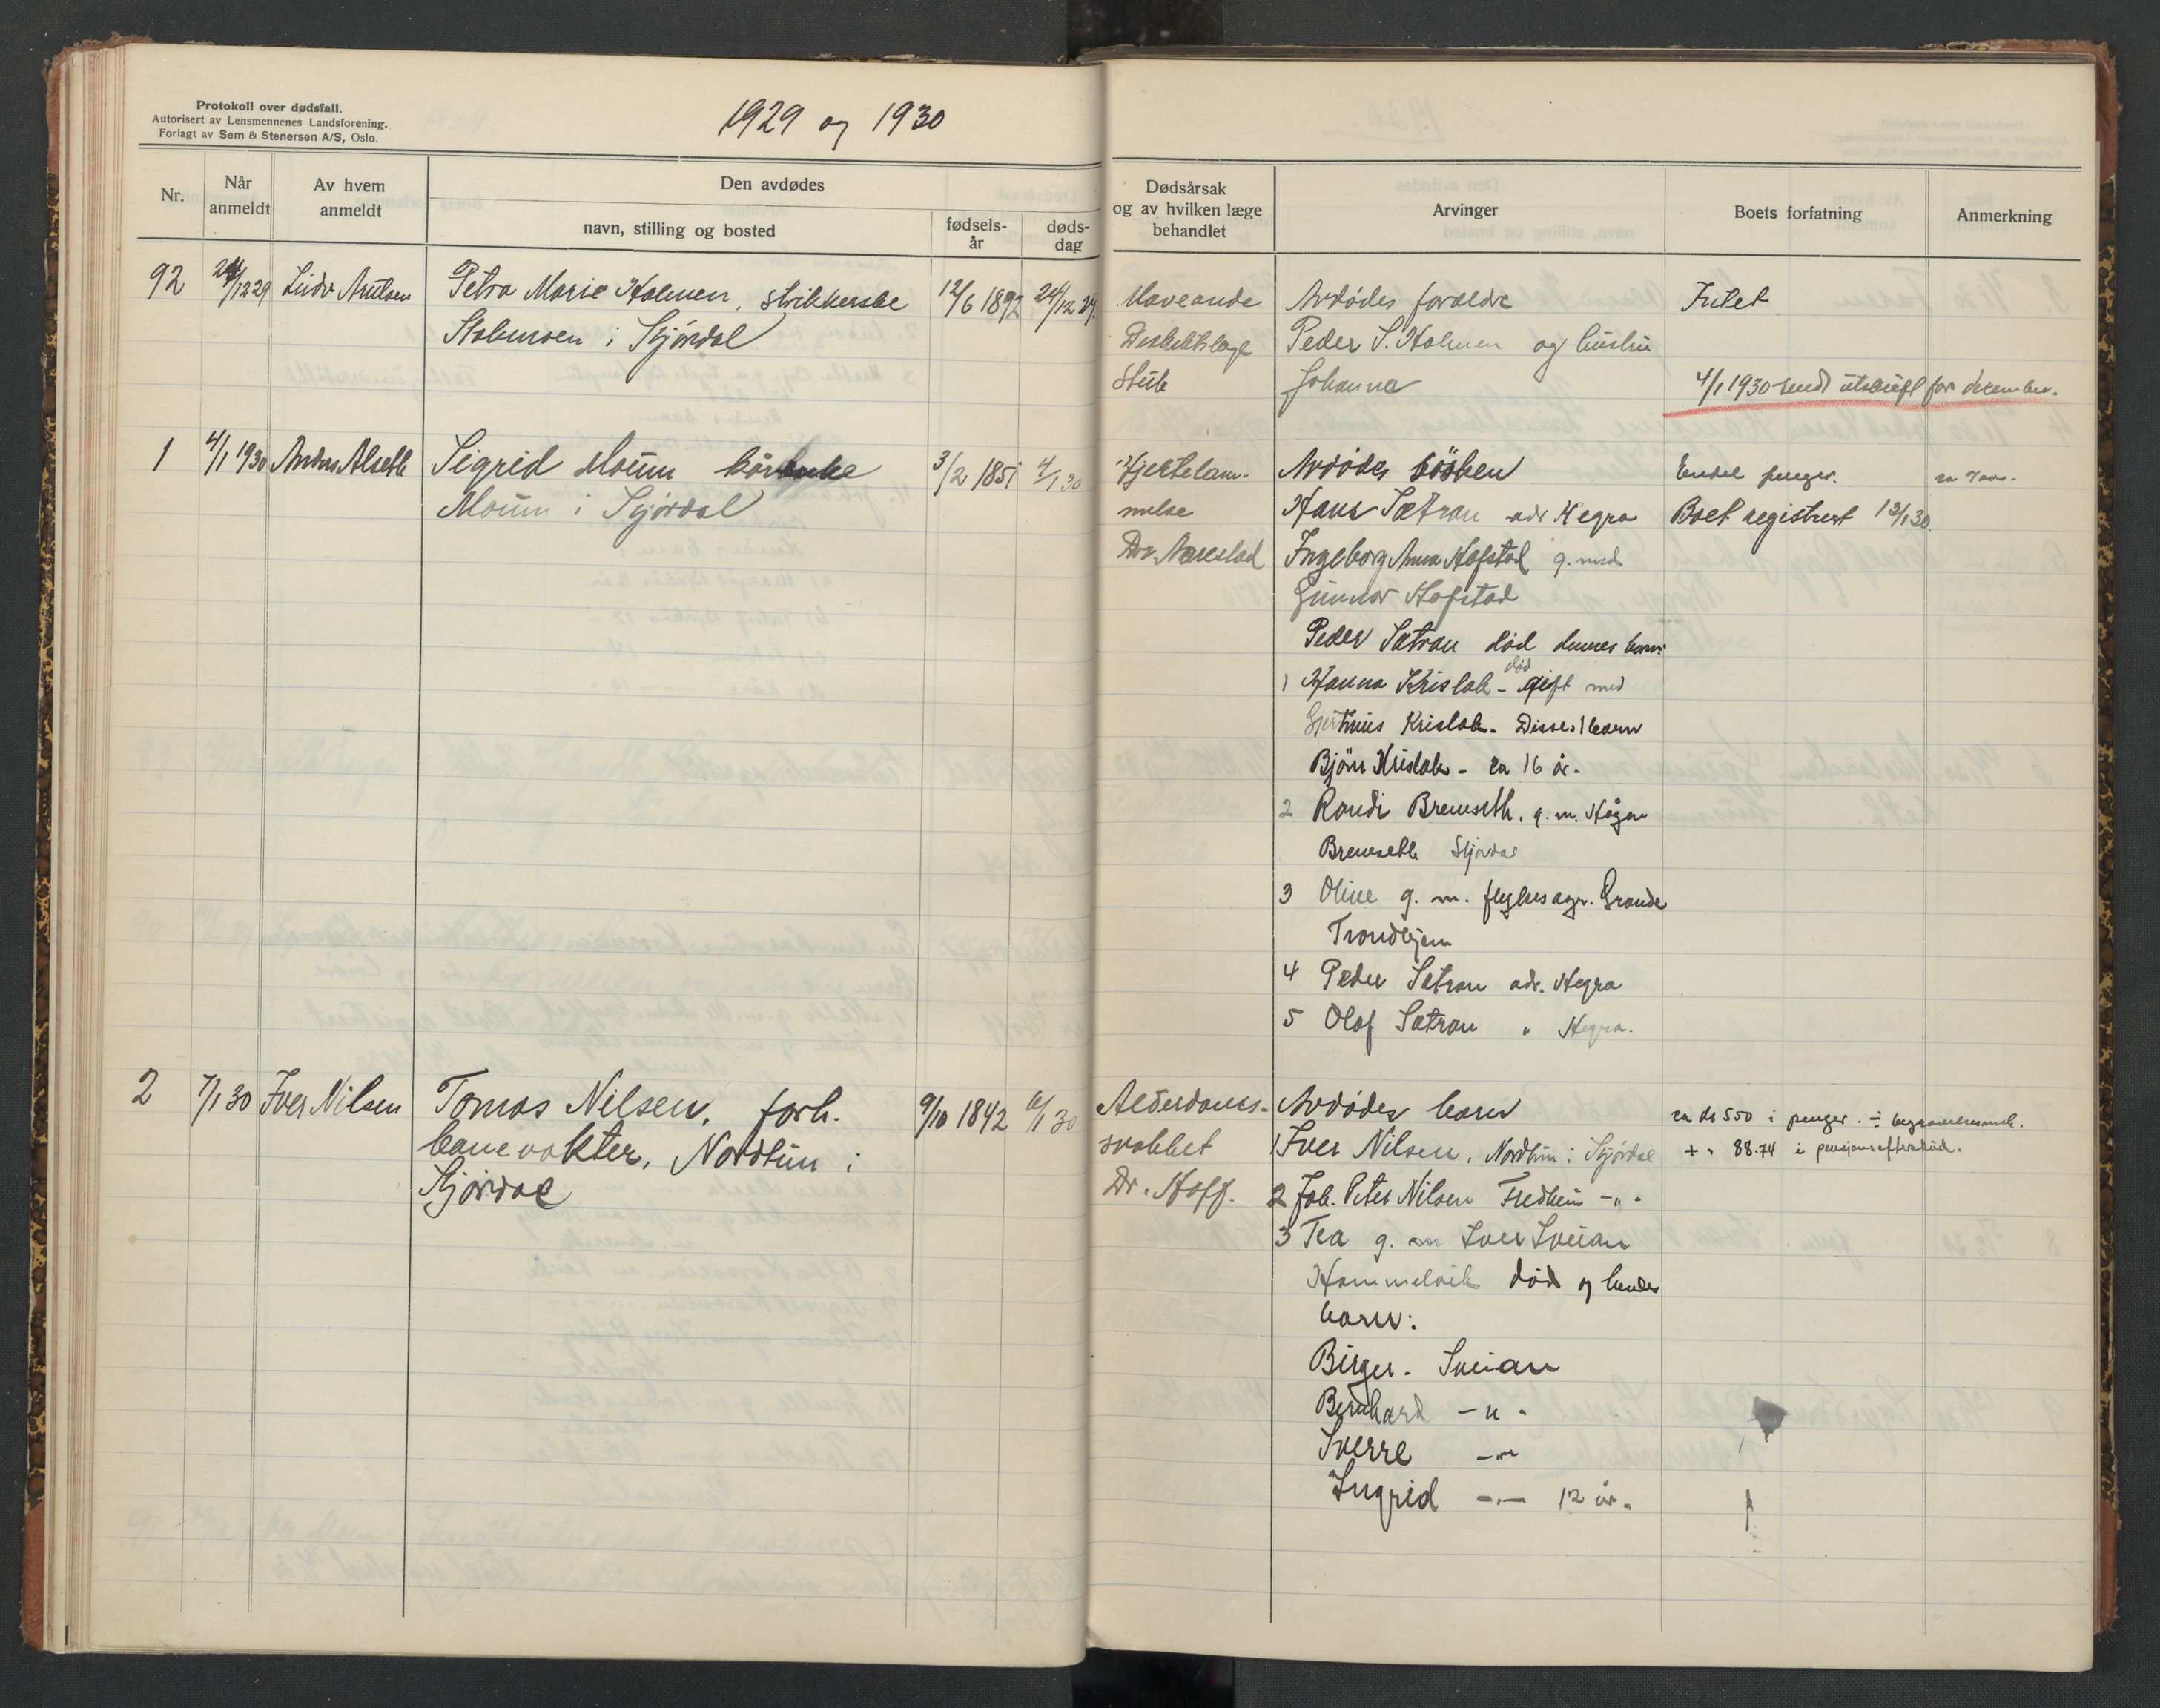 Protokoll over dødsfall.
Autorisert av Lensmennenes Landsforening.
Forlagt av Sem & Stenersen A/S, Oslo.
1929 og 1930
Nr.
Når anmeldt
Av hvem anmeldt
Den avdødes
navn, stilling og bosted
fødsels-år
døds-dag
Dødsårsak og av hvilken læge behandlet
Arvinger
Boets forfatning
Anmerkning
92
Petra Marie Holmen, strikkerske
12/6 1892 24/12 29.
i Skjørdal
Avdødes foreldre
Intet
Distriktslæge
Peder S. Holmen og hustru
Johanna
4/1 1930 sendt utskrift for desember.
1 4/1 1930 Anders Alseth
Sigrid Moum kårenke
3/2 1851 4/1 30
Moum i Skjørdal
Hjertelam-
melse
Dr.
Avdødes søsken
Endel penger.
Hans Sætran adr Hegra
Boet registrert 13/1 30.
Ingeborg Anna Hofstad g. med
Gunnar Hofstad
Peder Sætran død dennes barn:
død
1 Hanna Krislok - gift med
Gjertinus Krislok. Disses 1 barn
Bjørn Krislok - ca 16 år.
2 Randi Bremseth, g. m. Hågen
Bremseth Skjørdal
3 Oline g. m. Grande
Trondhjem
4 Peder Sætran adr. Hegra
5 Olaf Sætran " Hegra.
2 7/1 30 Iver Nilsen
Tomas Nilsen, forh.
9/10 1842 6/1 30
banevokter, Nordtun i
Skjørdal
Alderdoms-
svakhet
Dr. Hoff.
Avdødes barn
ca kr 550 i penger. ÷
1 Iver Nilsen, Nordtun i Skjørdal
+ " 88.74 i
2 Joh. Peter Nilsen Fredheim -"-
3 Tea g. m Iver Sveian
Hommelvik død og hendes
barn:
Birger. Sveian
Bernhard -"-
Sverre -"-
Ingrid -"- 12 år.